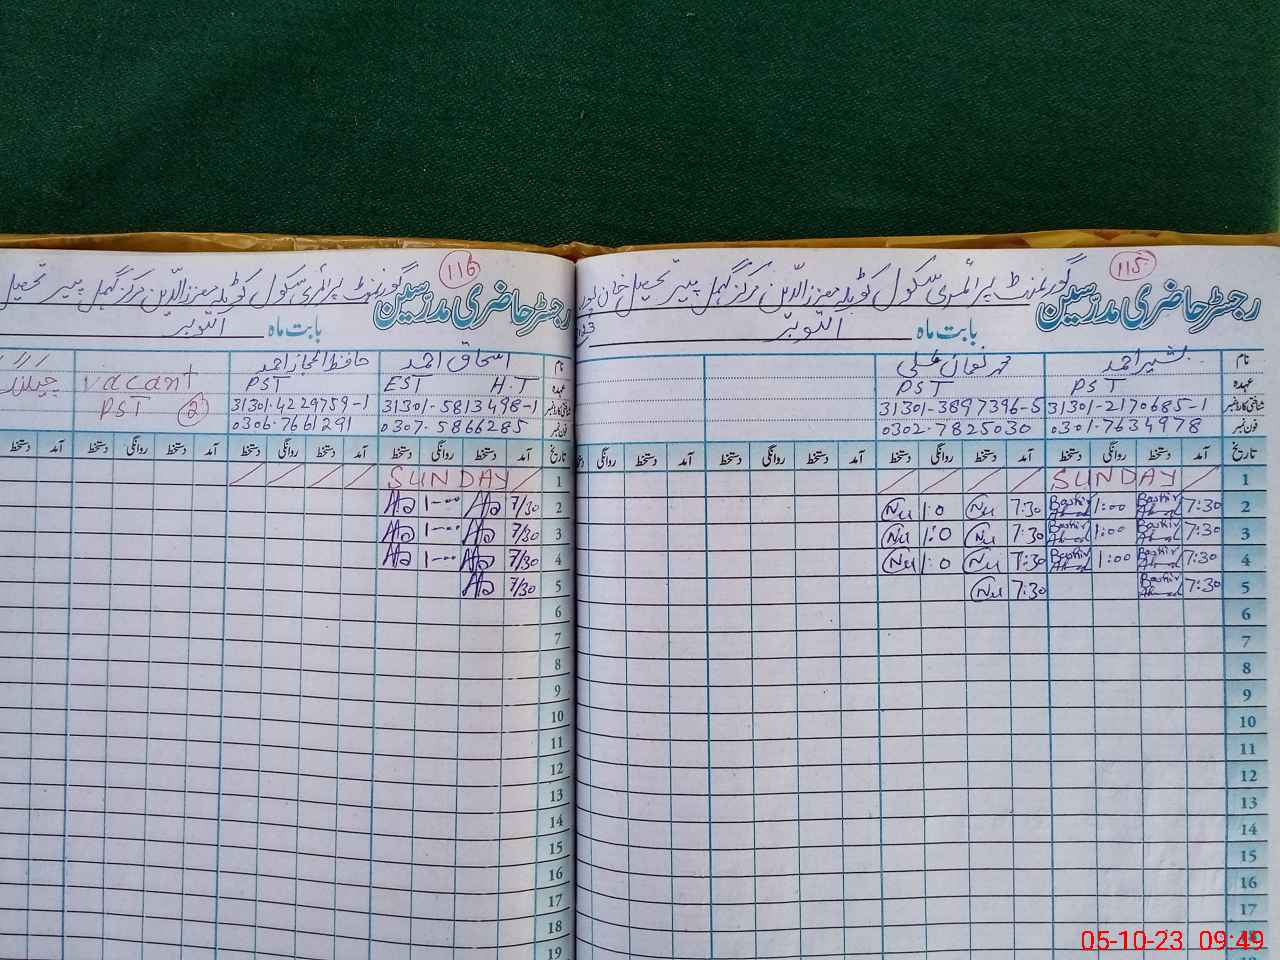 115
گورنمنٹ پرائمری سکول کوٹلہ معزالدین مرکز گہل پیر تحصیل خان پور
رجسٹر حاضری مدرسین
بابت ماہ اکتوبر
نام بشیر احمد محمد نعمان علی
عہدہ PST PST
شناختی کارڈ نمبر 31301-2170685-1 31301-3897396-5
فون نمبر 0301-7634978 0302-7825030
تاریخ آمد دستخط روانگی دستخط آمد دستخط روانگی دستخط آمد دستخط روانگی دستخط آمد دستخط روانگی دستخط
1 SUNDAY
2 7:30 Bashir Ahmad 1:00 Bashir Ahmad 7:30 1:0
3 7:30 Bashir Ahmad 1:00 Bashir Ahmad 7:30 1:0
4 7:30 Bashir Ahmad 1:00 Bashir Ahmad 7:30 1:0
5 7:30 Bashir Ahmad 7:30
6
7
8
9
10
11
12
13
14
15
16
17
18
116
گورنمنٹ پرائمری سکول کوٹلہ معزالدین مرکز گہل پیر تحصیل
رجسٹر حاضری مدرسین
بابت ماہ اکتوبر
نام اسحاق احمد حافظ اعجاز احمد
عہدہ EST H.T PST vacant
شناختی کارڈ نمبر 31301-5813498-1 31301-4229759-1 PST 2
فون نمبر 0307-5866285 0306-7661291
تاریخ آمد دستخط روانگی دستخط آمد دستخط روانگی دستخط آمد دستخط روانگی دستخط آمد دستخط
1 SUNDAY
2 7/30 1-00
3 7/30 1-00
4 7/30 1-00
5 7/30
6
7
8
9
10
11
12
13
14
15
16
17
18
19
05-10-23 09:49